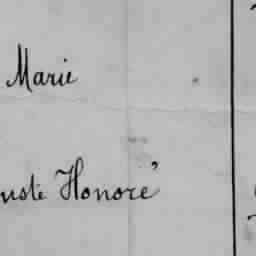 Marie
uste Honoré